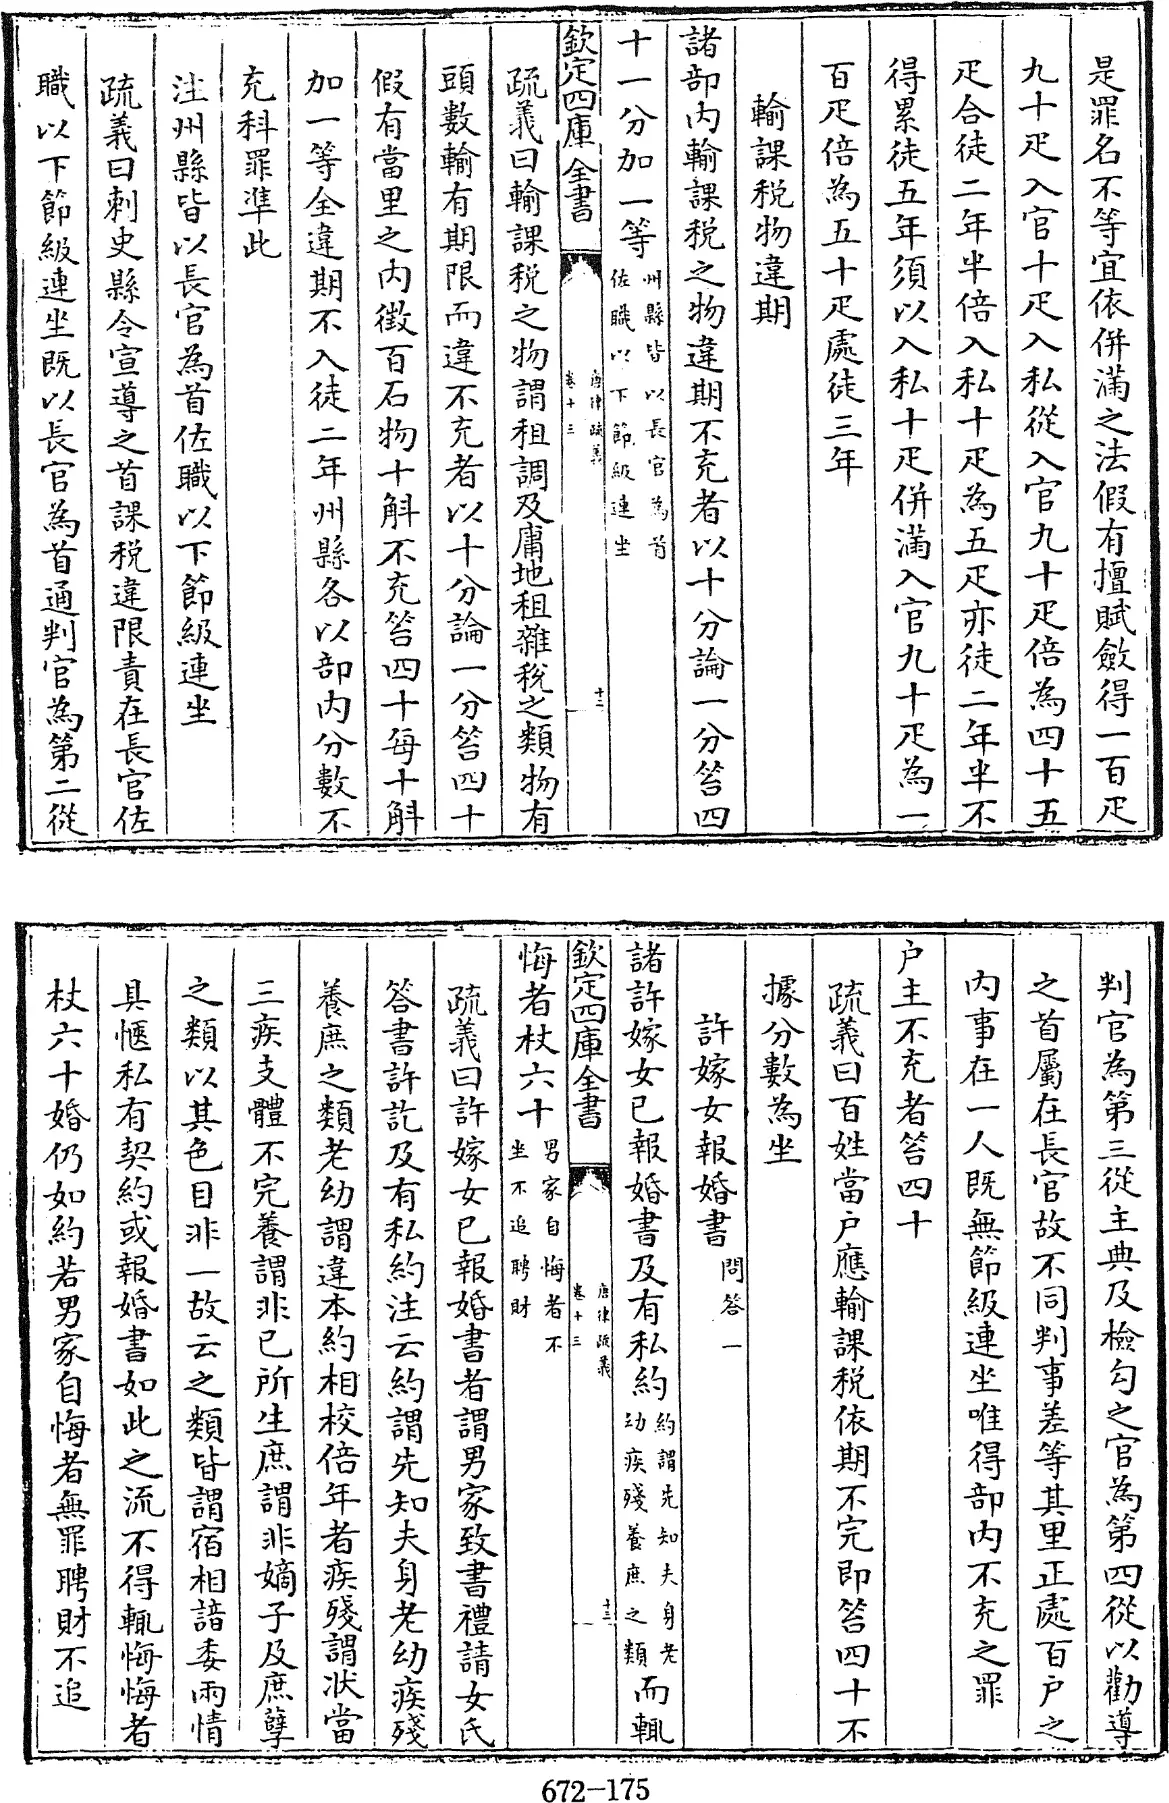 是罪名不等宜依併滿之法假有擅賦斂得一百疋
九十疋入官十疋入私從入官九十疋倍為四十五
疋合徒二年半倍入私十疋為五疋亦徒二年半不
得累徒五年須以入私十疋併滿入官九十疋為一
百疋倍為五十疋處徒三年
輸課稅物違期
諸部內輸課稅之物違期不充者以十分論一分笞四
十一分加一等州縣皆以長官為首佐職以下節級連坐
欽定四庫全書
唐律疏義
卷十三
十二
疏義曰輸課稅之物謂租調及庸地租雜稅之類物有
頭數輸有期限而違不充者以十分論一分笞四十
假有當里之內徵百石物十斛不充笞四十每十斛
加一等全違期不入徒二年州縣各以部內分數不
充科罪準此
注州縣皆以長官為首佐職以下節級連坐
疏義曰刺史縣令宣導之首課稅違限責在長官佐
職以下節級連坐既以長官為首通判官為第二從
判官為第三從主典及檢勾之官為第四從以勸導
之首屬在長官故不同判事差等其里正處百戶之
內事在一人既無節級連坐唯得部內不充之罪
戶主不充者笞四十
疏義曰百姓當戶應輸課稅依期不完即笞四十不
據分數為坐
許嫁女報婚書問答一
諸許嫁女已報婚書及有私約約謂先知夫身老幼疾殘養庶之類而輒
欽定四庫全書
唐律疏義
卷十三
十三
悔者杖六十男家自悔者不坐不追聘財
疏義曰許嫁女已報婚書者謂男家致書禮請女氏
答書許訖及有私約注云約謂先知夫身老幼疾殘
養庶之類老幼謂違本約相校倍年者疾殘謂狀當
三疾支體不完養謂非己所生庶謂非嫡子及庶孽
之類以其色目非一故云之類皆謂宿相諳委兩情
具愜私有契約或報婚書如此之流不得輒悔悔者
杖六十婚仍如約若男家自悔者無罪聘財不追
672-175